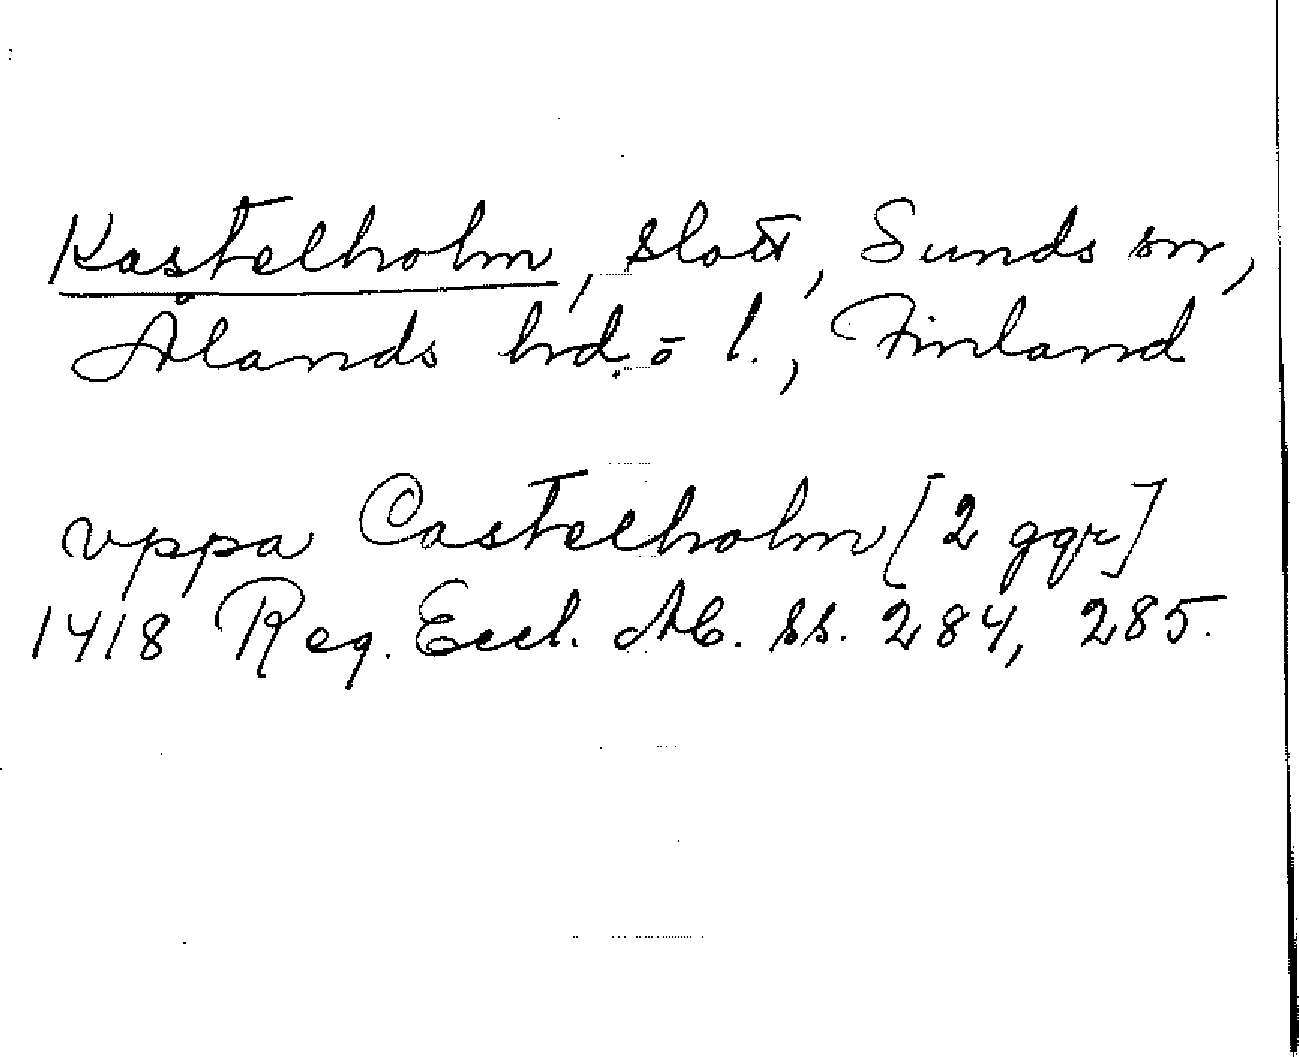 Kastelholm, slott, Sunds sn,
Ålands hrd. o l., Finland
vppa Castelholm [2 ggr]
1418 Reg. Eccl. Ab. ss. 284, 285.